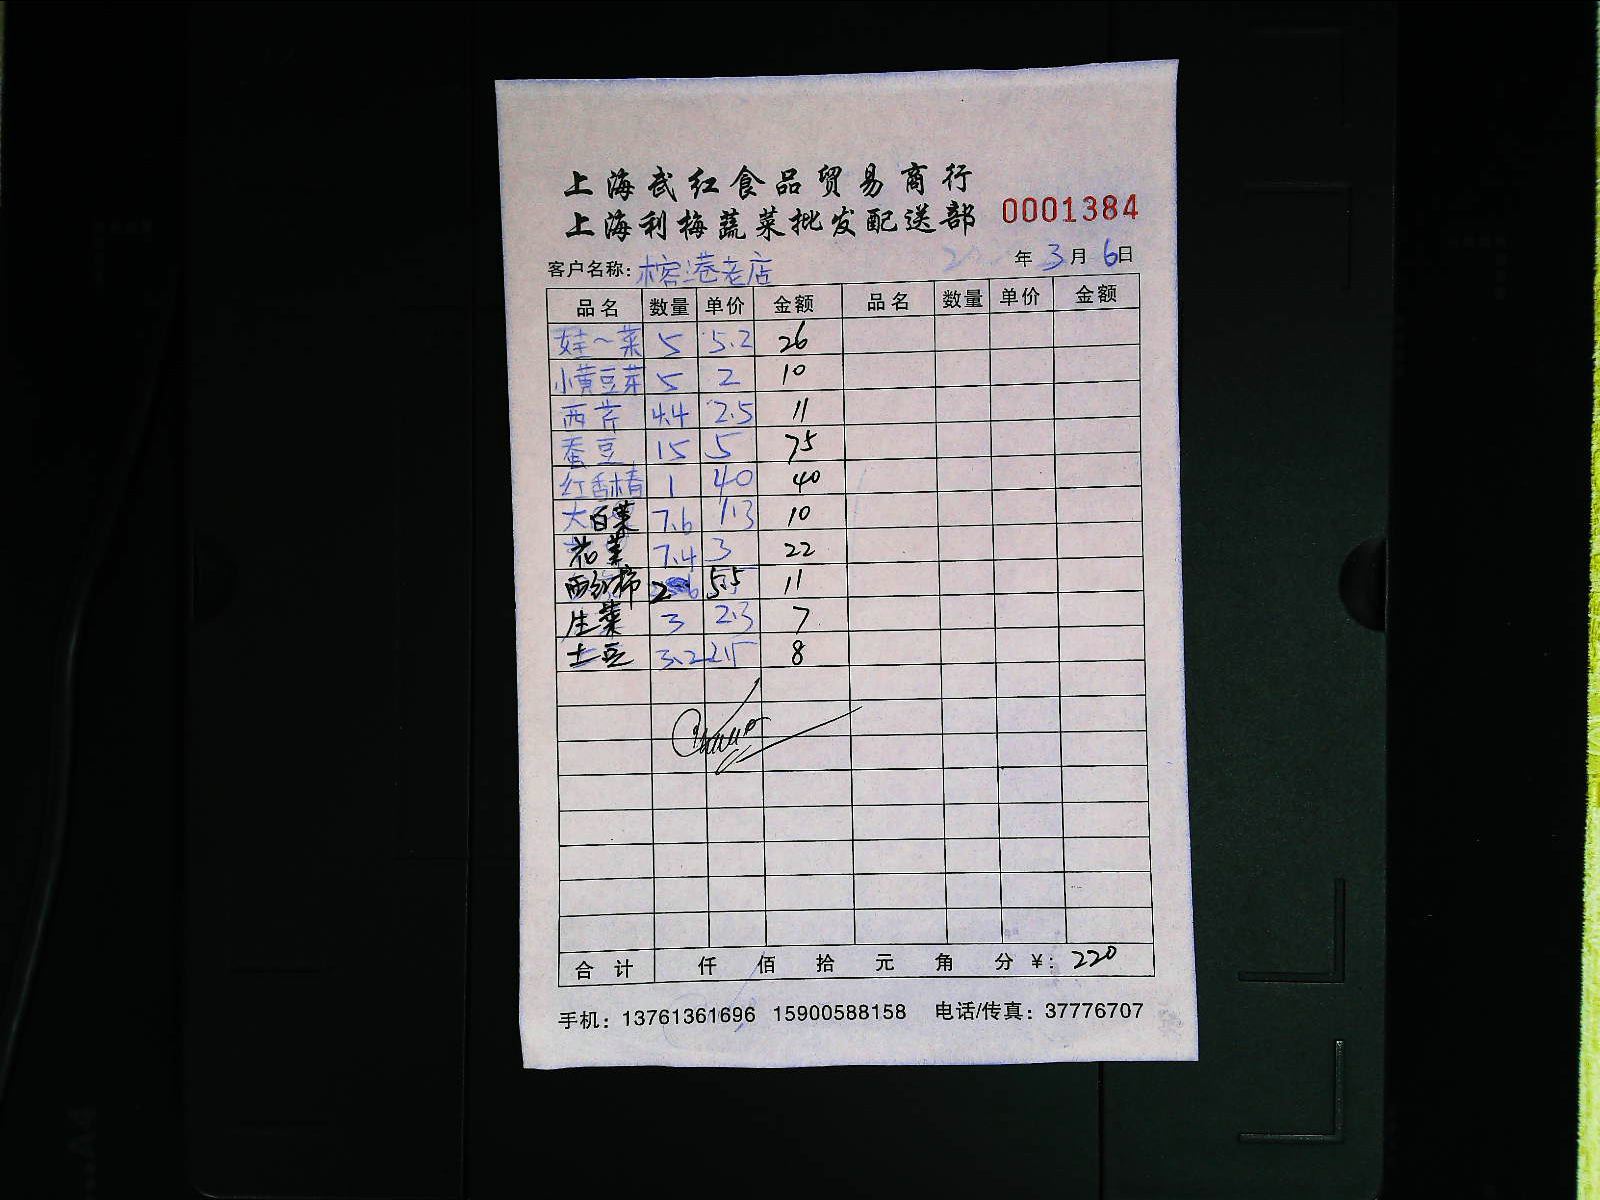 上海武红食品贸易商行
上海利梅蔬菜批发配送部 0001384
客户名称: 榕港老店 年 3 月 6 日
品名 数量 单价 金额 品名 数量 单价 金额
娃~菜 5 5.2 26
小黄豆芽 5 2 10
西芹 4.4 2.5 11
蚕豆 15 5 75
红香椿 1 40 40
大白菜 7.6 1.3 10
花菜 7.4 3 22
西红柿 2 5.5 11
生菜 3 2.3 7
土豆 3.2 2.5 8
合计 仟 佰 拾 元 角 分 ¥: 220
手机: 13761361696 15900588158 电话/传真: 37776707